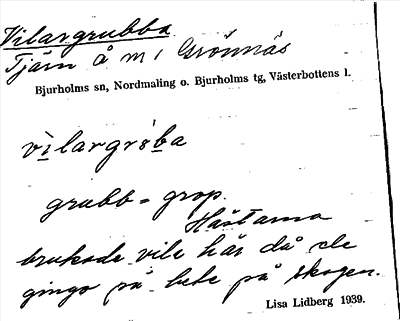 Vilargrubba
Tjärn å m / Grönnäs
Bjurholms sn, Nordmaling o. Bjurholms tg, Västerbottens l.
vìlargrʉba
grubb = grop.
Hästarna
brukade vila här då de
gingo på bete på skogen.
Lisa Lidberg 1939.